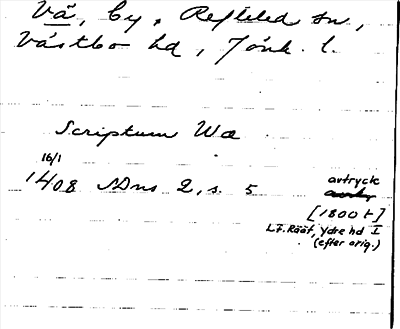 Vå, by, Reftele sn,
Västbo hd, Jönk. l.
Scriptum Wa
16/1
1408 SDns 2, s. 5
avtryck
[1800 t]
L.F. Rääf, Ydre hd I
(efter orig.)